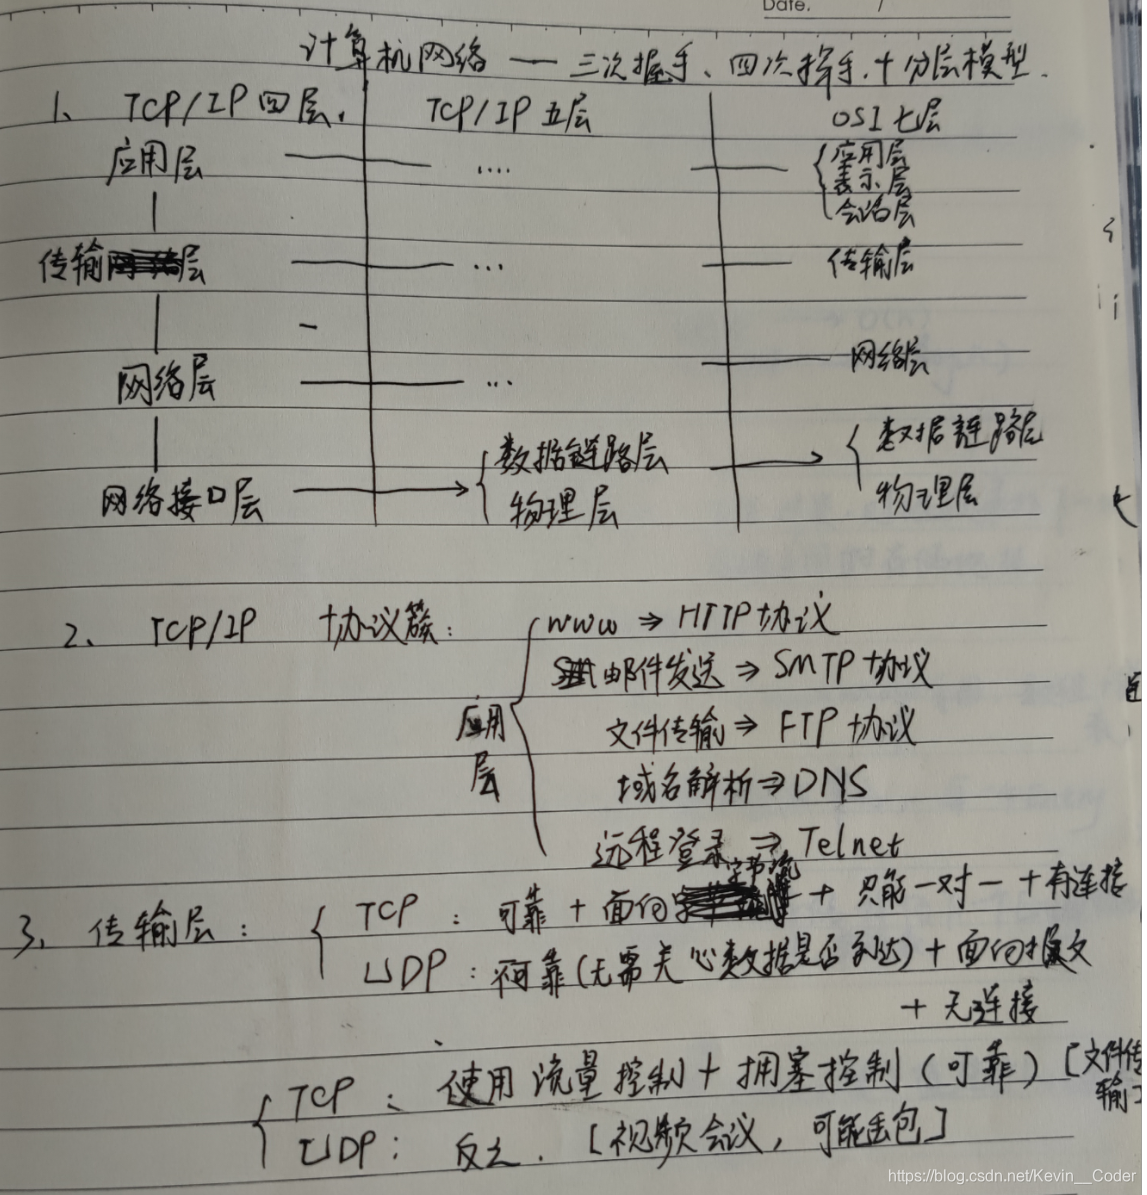 Date. /
计算机网络 — 三次握手、四次挥手.十分层模型.
1、 TCP/IP 四层. TCP/IP 五层 OSI 七层
应用层 — .... — { 应用层
表示层
会话层
传输层 — ... — 传输层
网络层 — ... — 网络层
网络接口层 → { 数据链路层 → { 数据链路层
物理层 物理层
2、 TCP/IP 协议簇:
应用层 { www ⇒ HTTP协议
邮件发送 ⇒ SMTP协议
文件传输 ⇒ FTP协议
域名解析 ⇒ DNS
远程登录 ⇒ Telnet
3、传输层: { TCP : 可靠 + 面向字节流 + 只能一对一 + 有连接
UDP : 不可靠(无需关心数据是否到达) + 面向报文
+ 无连接
{ TCP : 使用流量控制 + 拥塞控制 (可靠) [文件传
输]
UDP : 反之. [视频会议, 可能丢包]
https://blog.csdn.net/Kevin__Coder